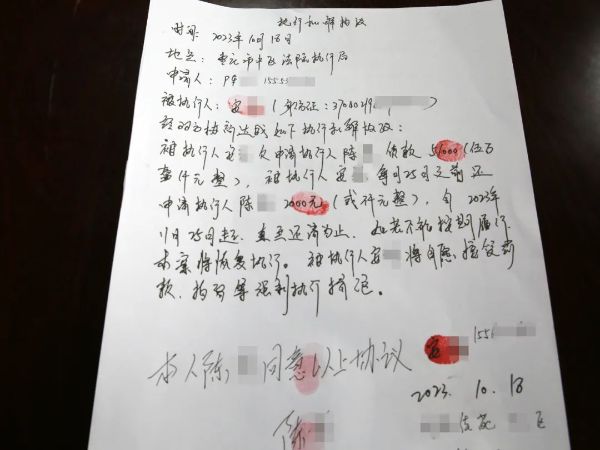 执行和解协议
时间：2023年10月18日
地点：枣庄市中区法院执行局
申请人：陈 15553
被执行人：安 （身份证：3700219 ）
经双方协商达成如下执行和解协议：
被执行人安 欠申请执行人陈 债款51000（伍万
壹仟元整），被执行人安 每月25号之前还
申请执行人陈 2000元（贰仟元整），自2023年
11月25号起，直至还清为止，如若不能按期履行
本案将恢复执行。被执行人安 将自愿接受罚
款、拘留等强制执行措施。
本人陈 同意以上协议
陈
安 155
2023. 10. 18